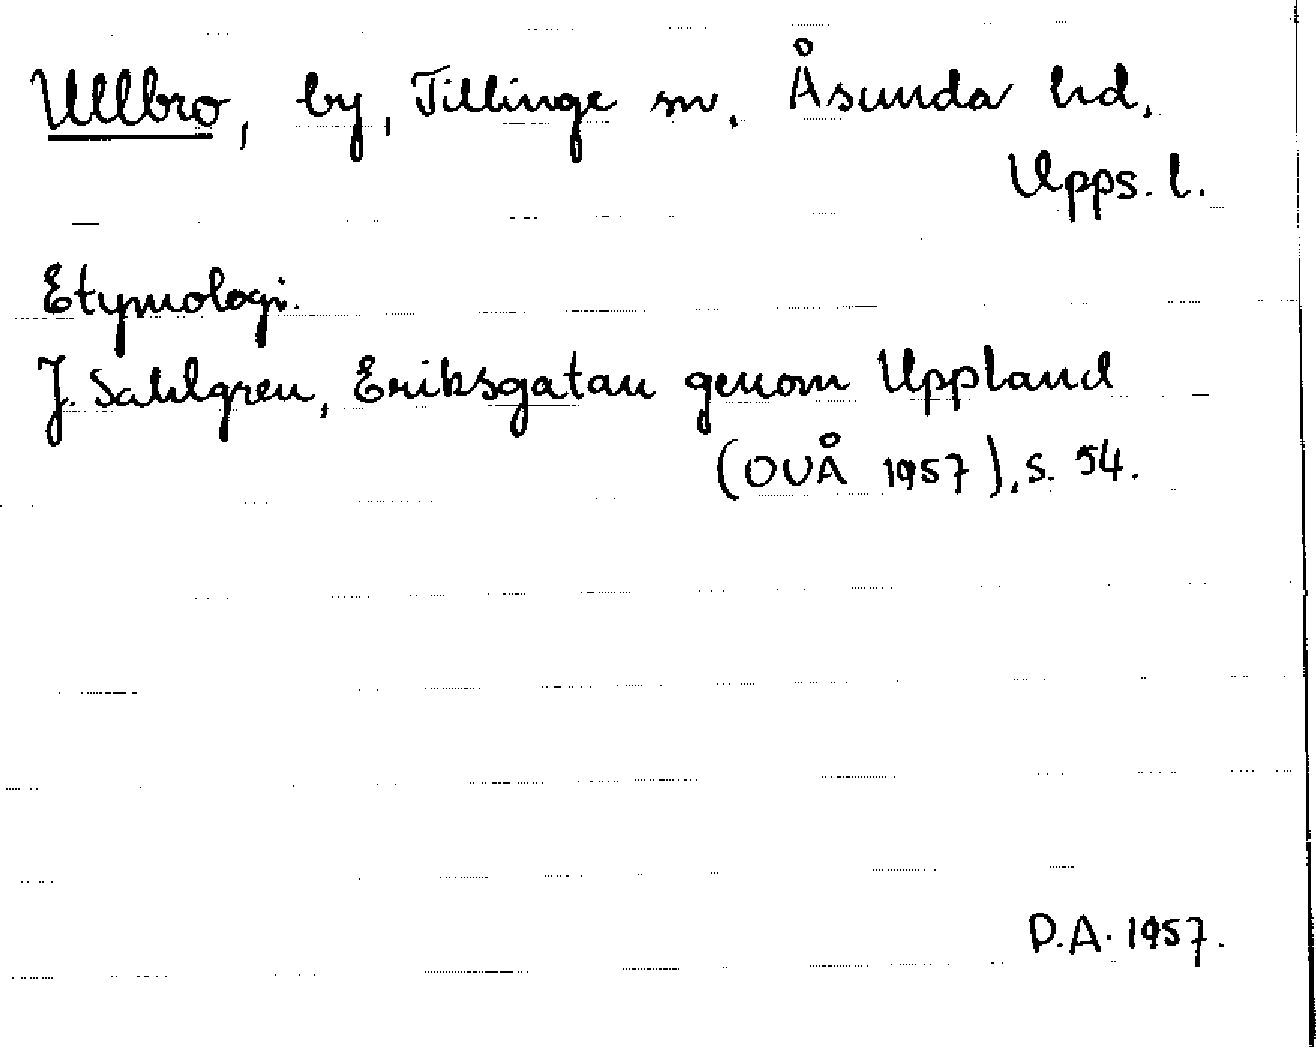 Ullbro, by, Tillinge sn. Åsunda hd.
Upps. l.
Etymologi.
J. Sahlgren, Eriksgatan genom Uppland
(OUÅ 1957), s. 54.
D.A. 1957.